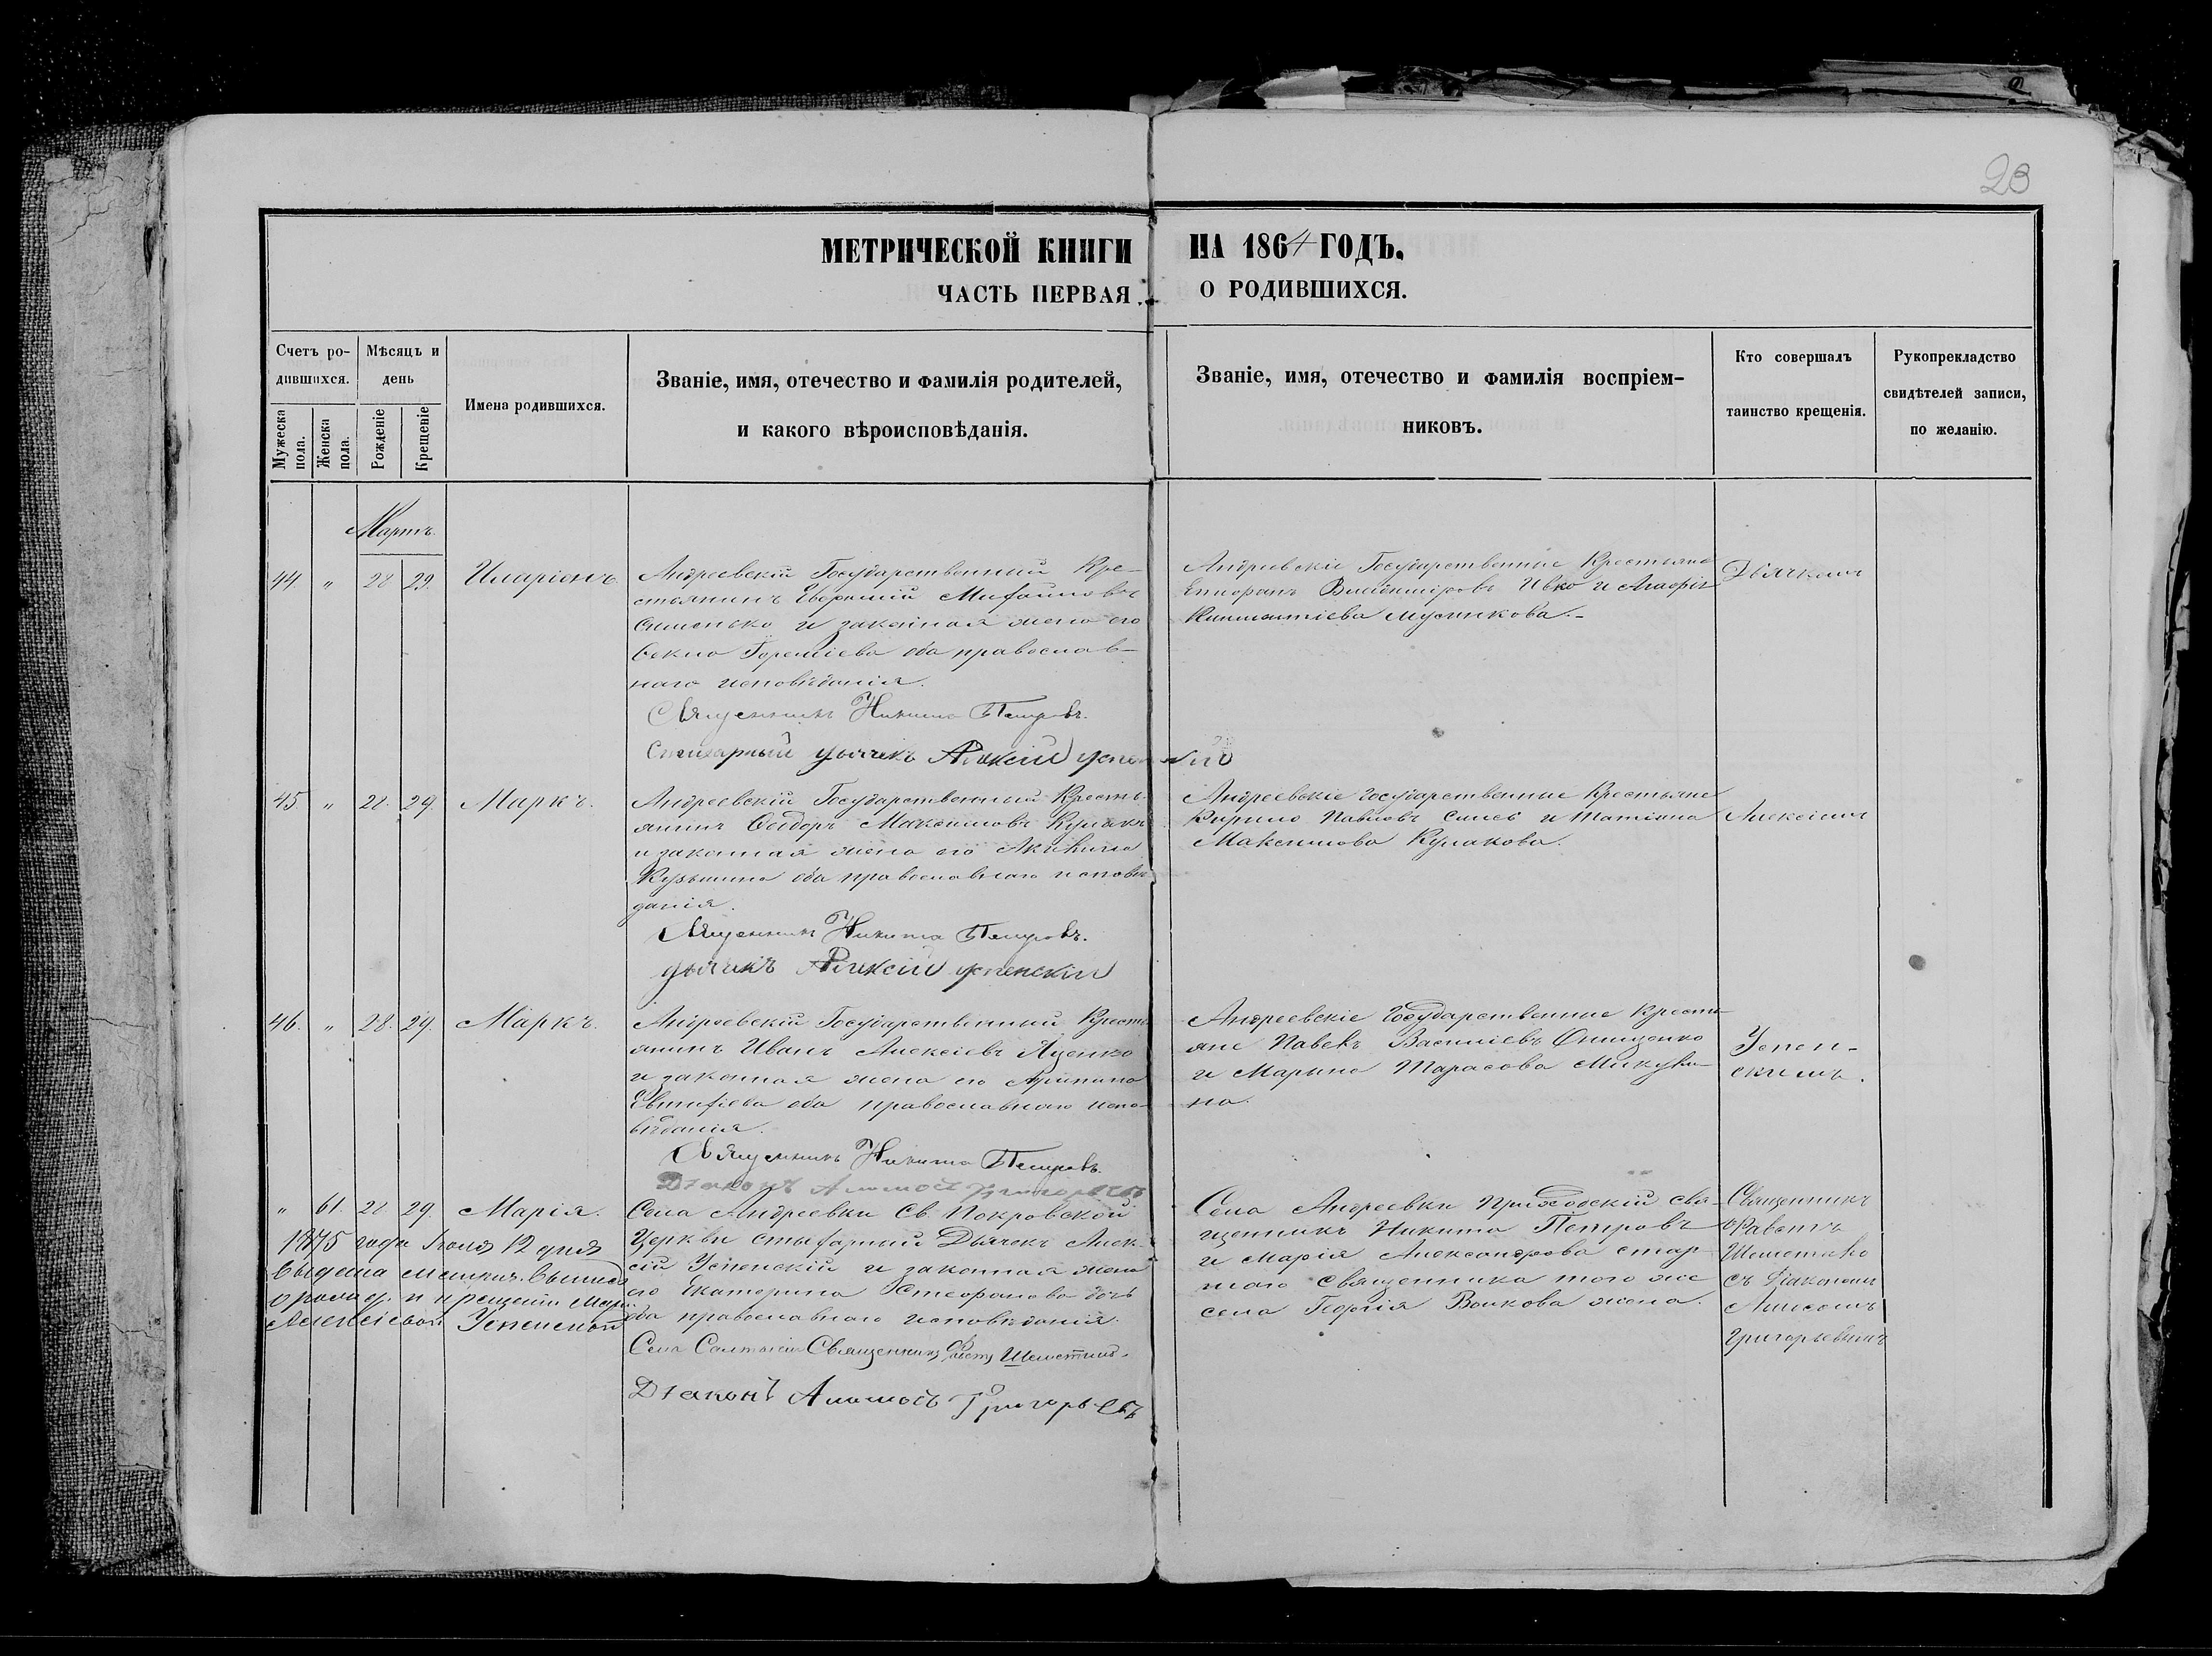 23
МЕТРИЧЕСКОЙ КНИГИ НА 1864 ГОДЪ.
ЧАСТЬ ПЕРВАЯ. О РОДИВШИХСЯ.
Счетъ ро-
дившихся.
Мужеска пола.
Женска пола.
Мѣсяцъ и
день
Рожденіе
Крещеніе
Имена родившихся.
Званіе, имя, отечество и фамилія родителей,
и какого вѣроисповѣданія.
Званіе, имя, отечество и фамилія воспріем-
никовъ.
Кто совершалъ
таинство крещенія.
Рукоприкладство
свидѣтелей записи,
по желанію.
Мартъ.
44. " 28 29. Иларіонъ
Андреевскій Государственный Кре-
стьянинъ Михаиловъ
и законная жена его
оба православ-
наго исповѣданія.
Священникъ Никита Петровъ.
Стихарный дьячекъ Алексій Успенскій
Андреевскіе Государственные Крестьяне
Владиміровъ Ивко и Агафія
Дьячкомъ
45 " 28. 29. Маркъ.
Андреевскій Государственный Кресть-
янинъ Ѳеодоръ Максимовъ Кулакъ
и законная жена его Акилина
Кузьмина оба православнаго исповѣ-
данія.
Священникъ Никита Петровъ.
дьячекъ Алексій Успенскій
Андреевскіе Государственные Крестьяне
Кирило Павловъ и Татіана
Максимова Кулакова.
Алексіемъ
46. " 28. 29. Маркъ.
Андреевскій Государственный Кресть-
янинъ Иванъ Алексіевъ Яценко
и законная жена его Агрипина
Евтихіева оба православнаго испо-
вѣданія.
Священникъ Никита Петровъ.
Діаконъ
Андреевскіе Государственные Кресть-
яне Павелъ Василіевъ Онищенко
и Марина Тарасова
на.
Успен-
скимъ.
" 61. 28 29. Марія.
Села Андреевки Св. Покровской
Церкви стихарный Дьячекъ Алек-
сій Успенскій и законная жена
его Екатерина Стефанова дочь
оба православнаго исповѣданія.
Села Священникъ
Діаконъ Григорьевъ
1875 года Іюня 12 дня
Выдана
о рожд. и крещеніи Маріи
Алексіевой Успенской
Села Андреевки приходскій свя-
щенникъ Никита Петровъ
и Марія Александрова стар-
шаго священника того же
села Георгія Волкова жена.
Священникъ
съ Діакономъ
Григорьевымъ